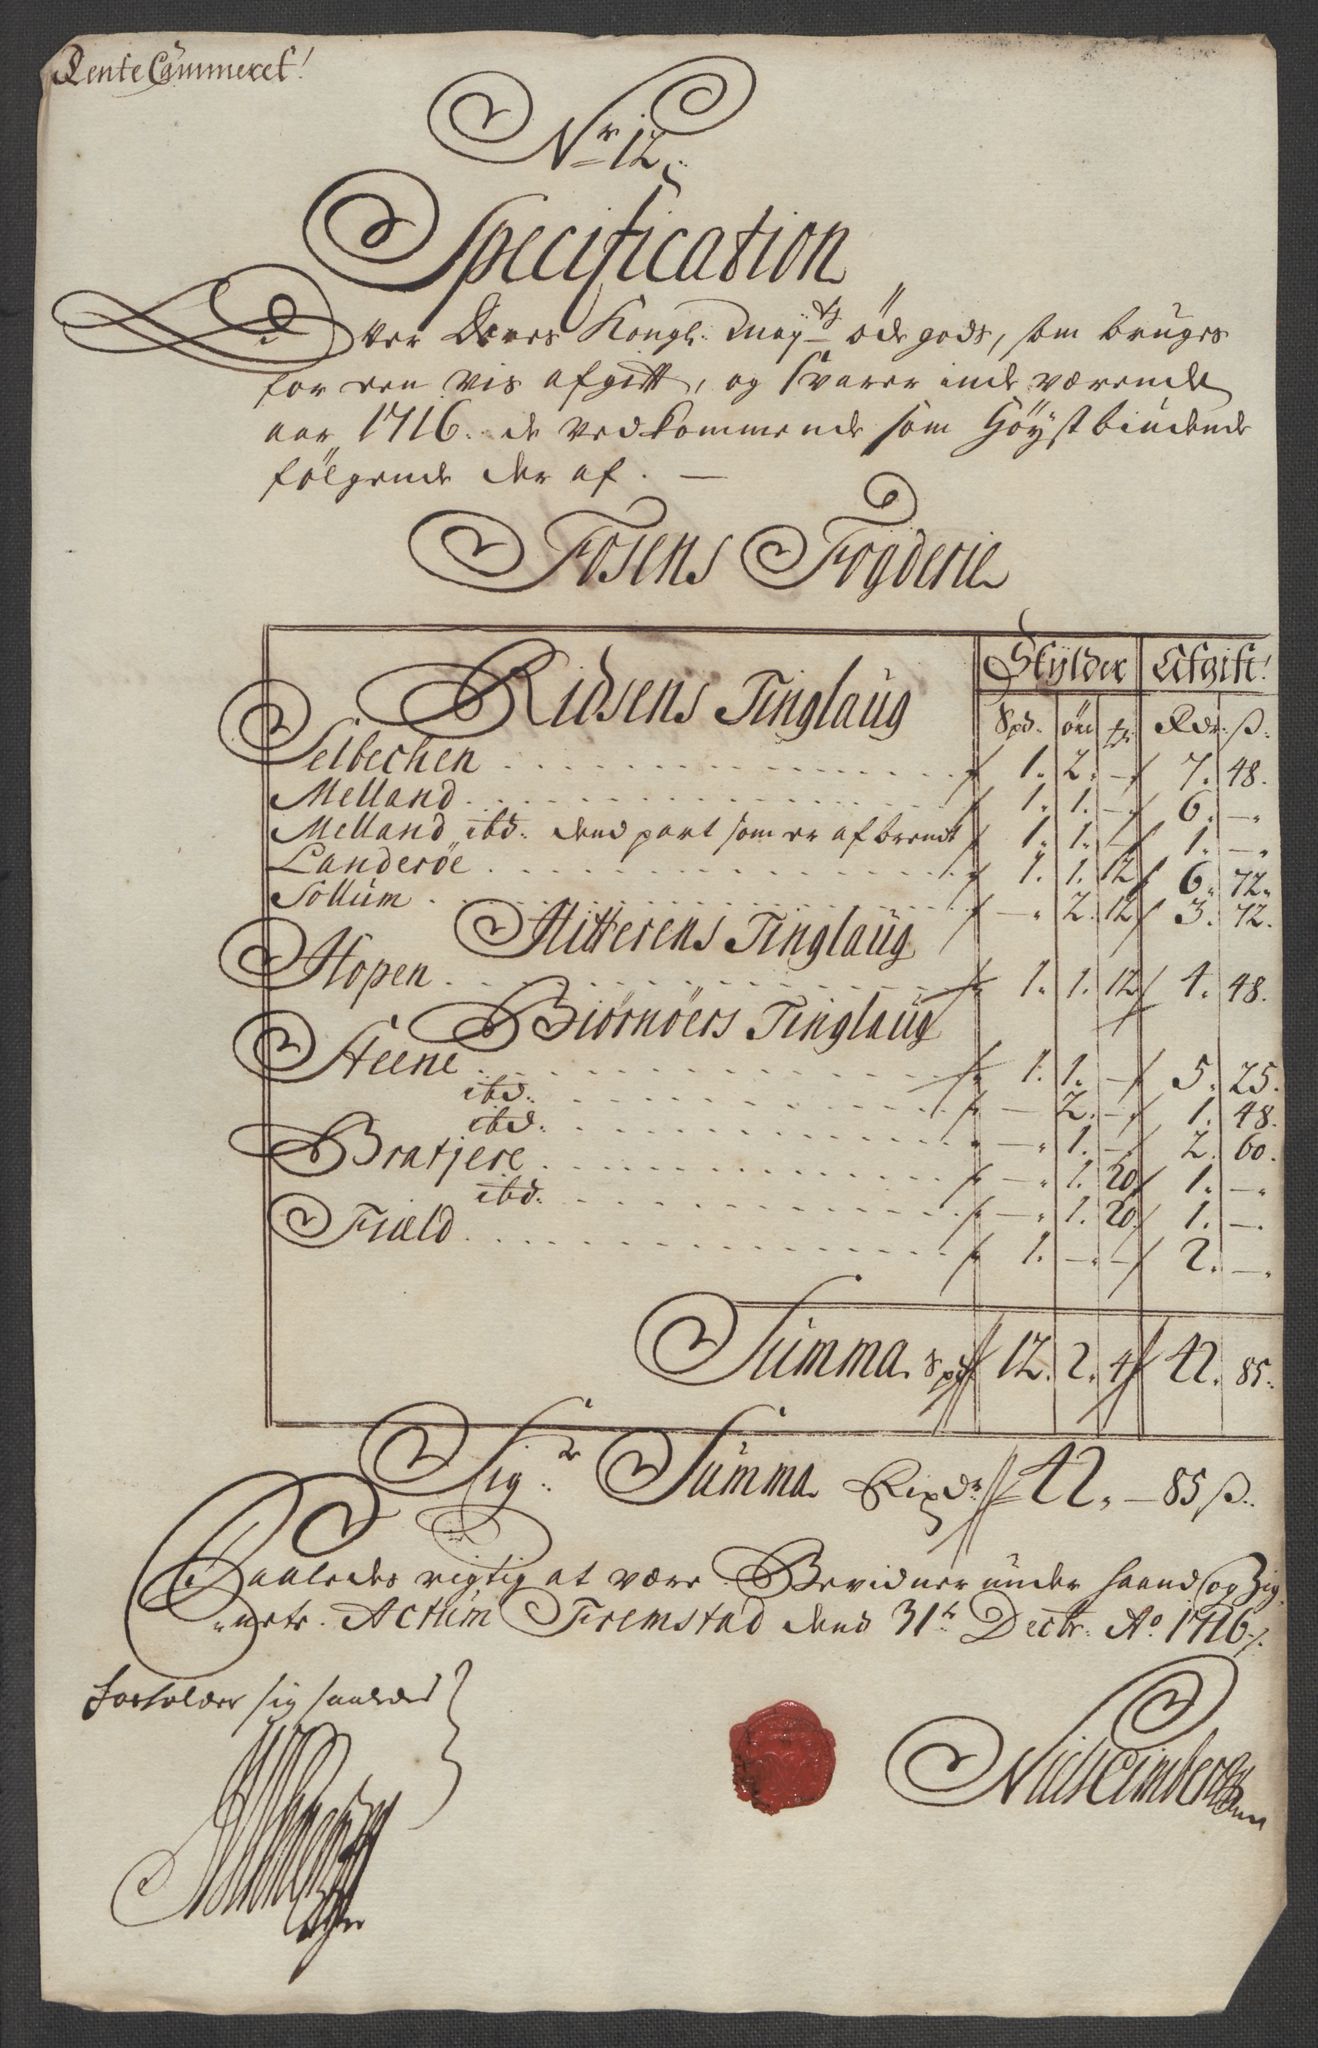 Rente Cammeret!
Nr. 12.
Specification
Ofver Deres Kongl: Mayts ödegods, som bruges
for een vis afgift, og svarer inde værende
aar 1716. de vedkommende som Höyst biudende
fölgende der af. —
Fosens Fogderie
Skylder Afgift!
Ridsens Tinglaug Spd. öre tr: Rdr. ß.
Selbechen 1. 2. — 7. 48.
Melland 1. 1. — 6. —
Melland ibd. dend part som er afbrendt 1. 1. — 1. —
Landeröe 1. 1. 12 6. 72.
Sollum — 2. 12 3. 72.
Hitterens Tinglaug
Hopen 1. 1. 12 4. 48.
Biörnöers Tinglaug
Steene 1. 1. — 5. 25.
ibd. — 2. — 1. 48.
ibd. — 1. — 2. 60.
Bratjere — 1. 20 1. —
ibd. — 1. 20 1. —
Fiæld 1. — — 2. —
Summa Spd 12. 2. 4 42. 85.
Sigr Summa Rixdr 42. — 85 ß.
Saaledes rigtig at være Bevidner under haand og Zig-
nete. Actum Fremstad dend 31te Decbr. Ao 1716
forholder sig saaledes